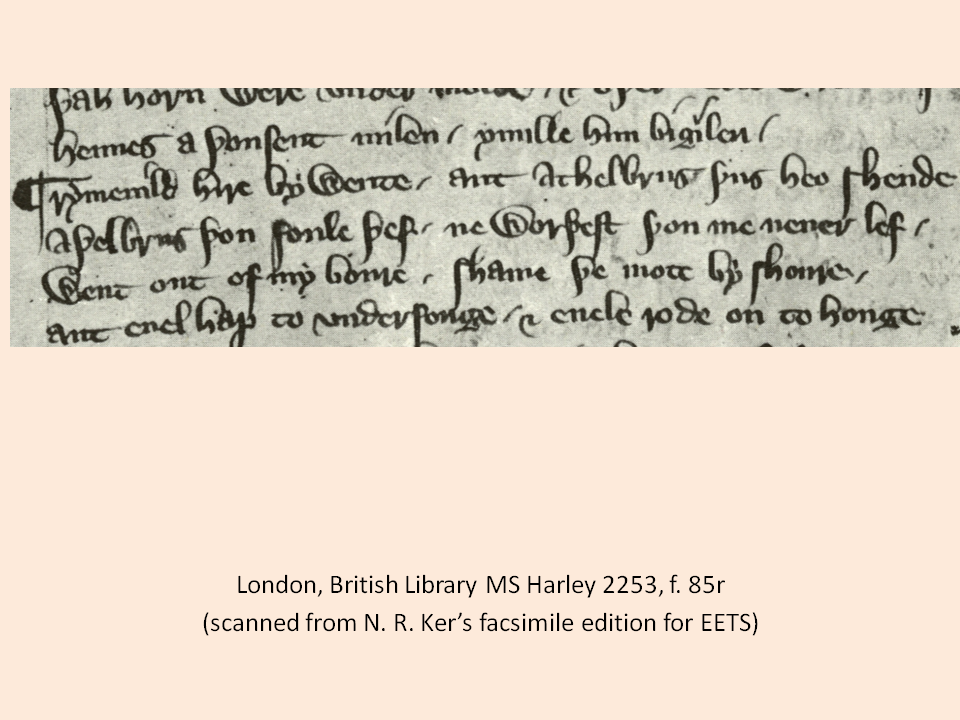 þah horn were vnder molde / & oþer
hennes a þousent milen / ynulle him bigilen /
¶ Rymenild hire by wente / ant Athelbrus þus heo shende
Aþelbrus þou foule þef / ne worþest þou me neuer lef /
Went out of my boure / shame þe mote by shoure /
ant euel hap to vnderfonge / & euele rode on to honge
London, British Library MS Harley 2253, f. 85r
(scanned from N. R. Ker’s facsimile edition for EETS)